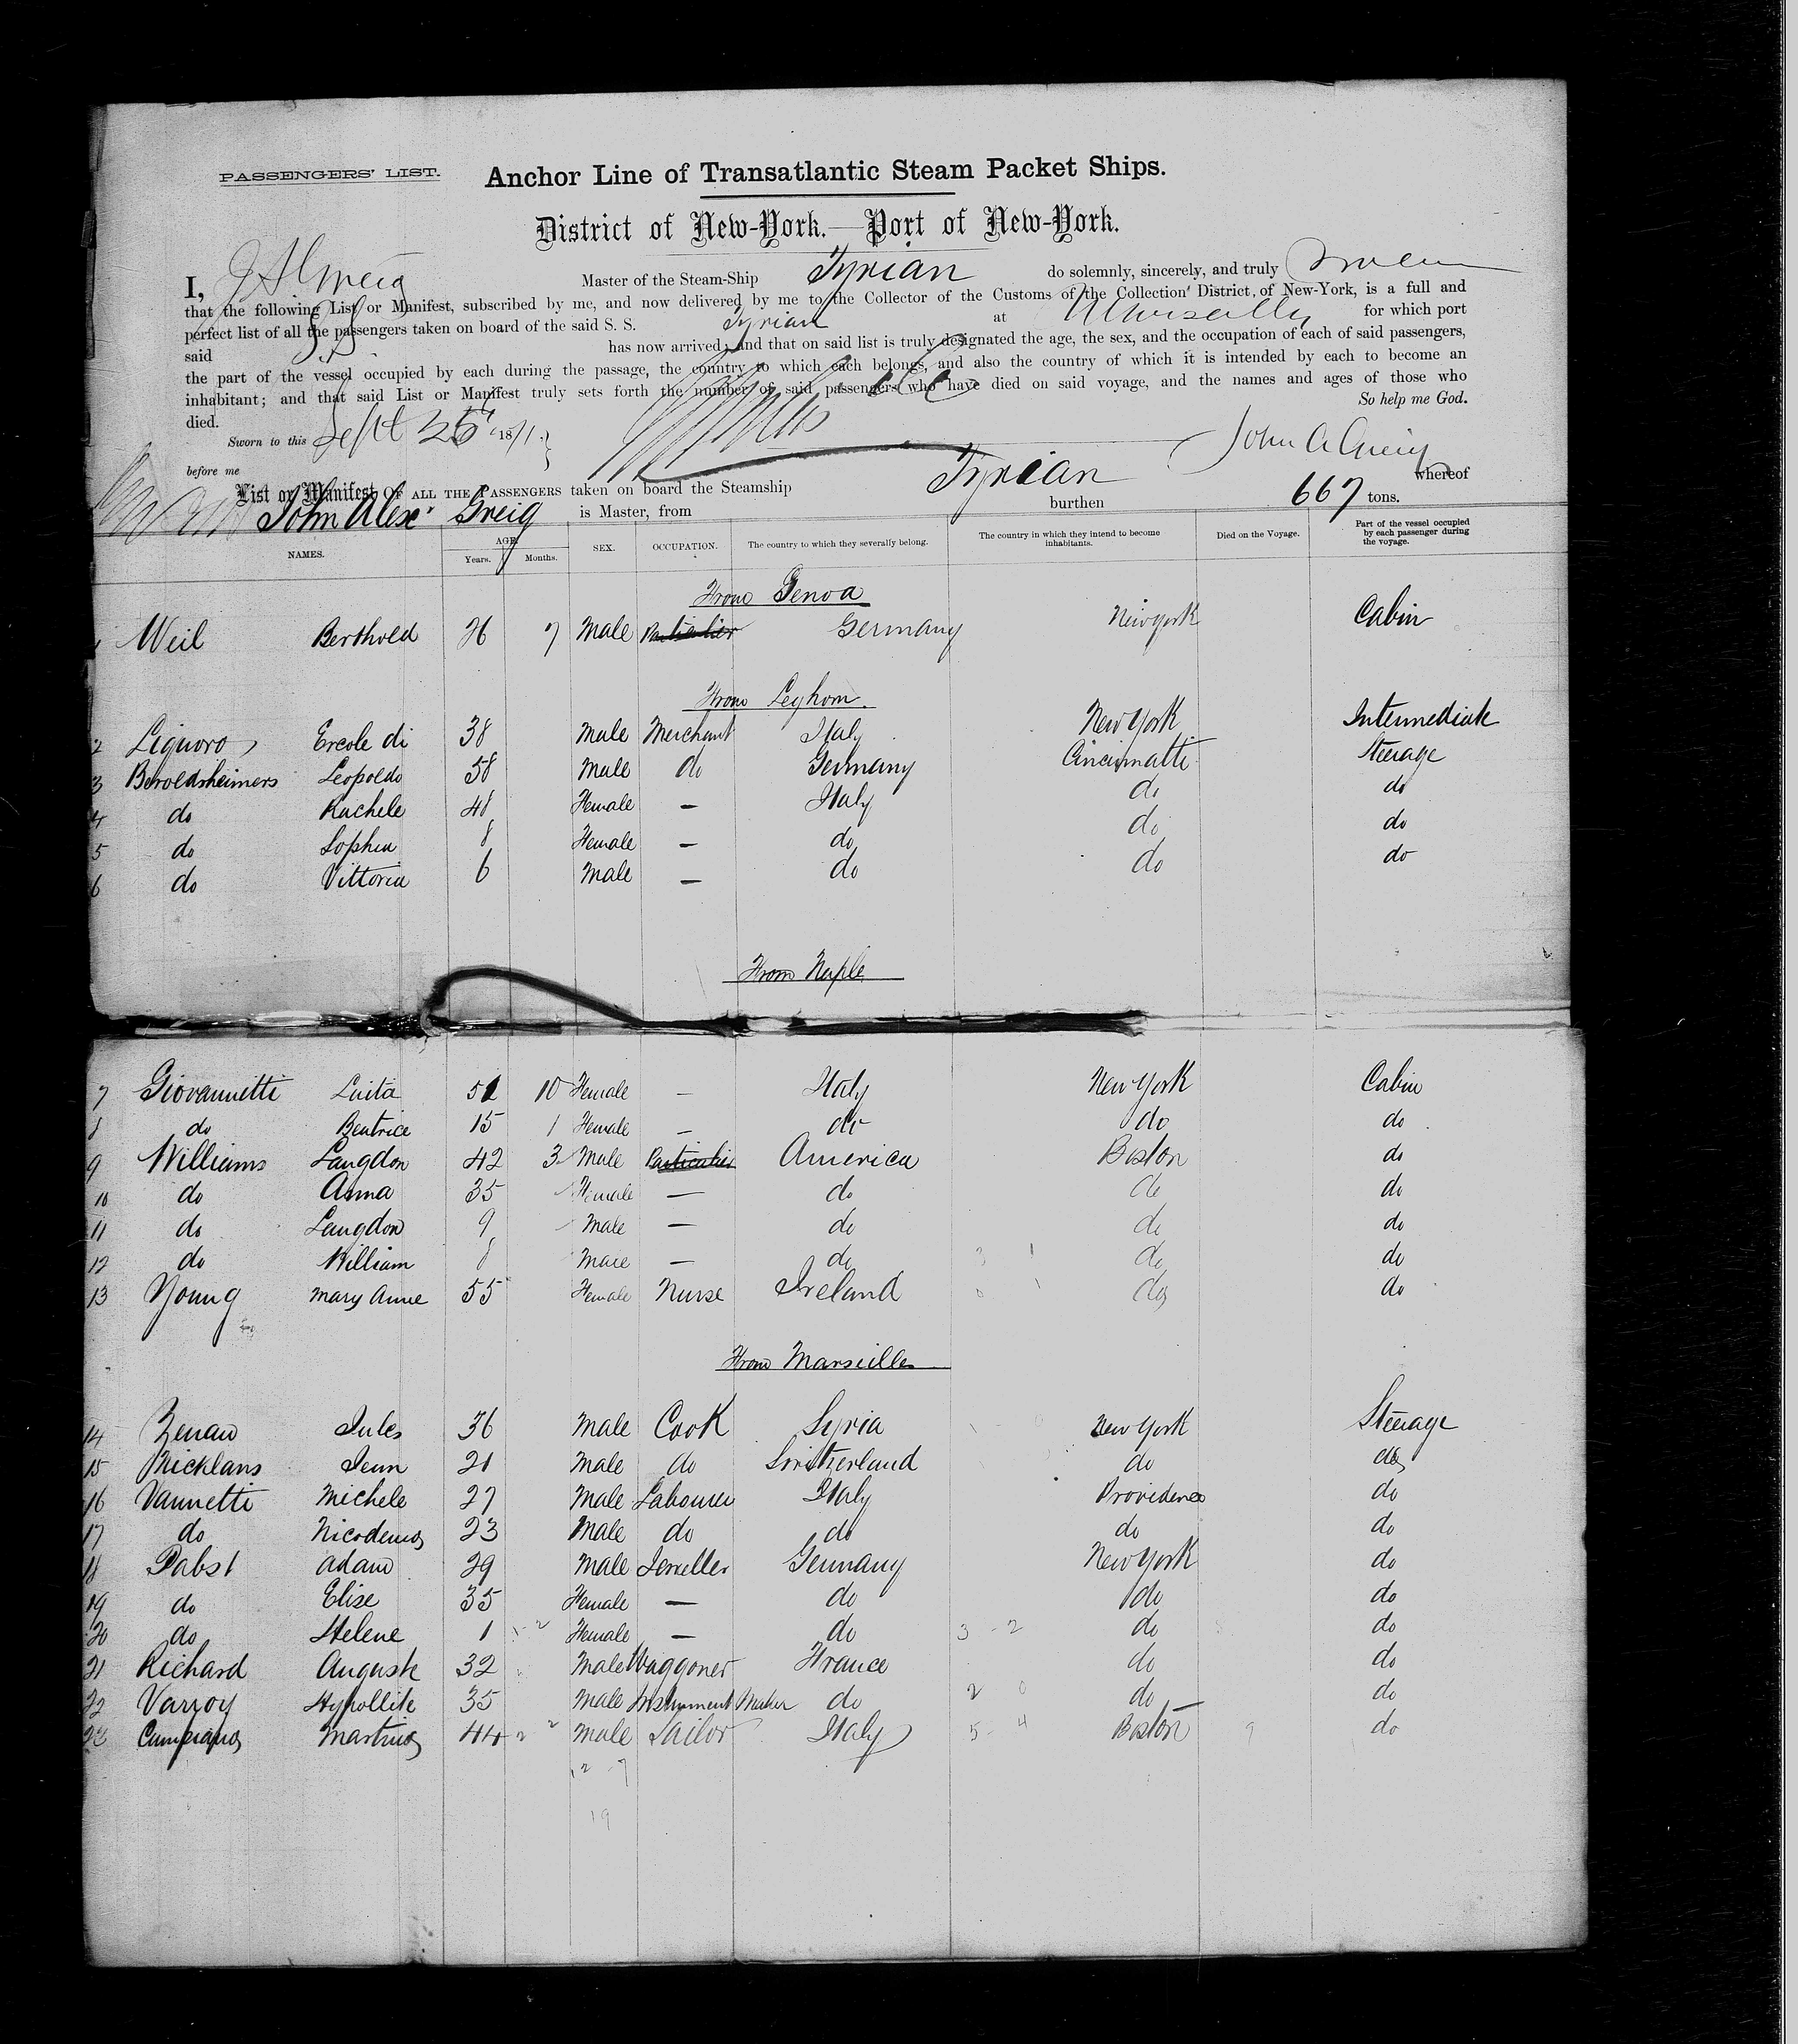 PASSENGERS' LIST. Anchor Line of Transatlantic Steam Packet Ships.
District of New-York.—Port of New-York.
I, J A Greig Master of the Steam-Ship Tyrian do solemnly, sincerely, and truly swear
that the following List or Manifest, subscribed by me, and now delivered by me to the Collector of the Customs of the Collection District of New-York, is a full and
perfect list of all the passengers taken on board of the said S. S. Tyrian at Marseilles for which port
said S.S. has now arrived; and that on said list is truly designated the age, the sex, and the occupation of each of said passengers,
the part of the vessel occupied by each during the passage, the country to which each belongs, and also the country of which it is intended by each to become an
inhabitant; and that said List or Manifest truly sets forth the number of said passengers who have died on said voyage, and the names and ages of those who
died. So help me God.
Sworn to this Sept 25 1871. John A Greig
before me
List or Manifest OF ALL THE PASSENGERS taken on board the Steamship Tyrian whereof
John Alex' Greig is Master, from burthen 667 tons.
NAMES. AGE. Years. Months. SEX. OCCUPATION. The country to which they severally belong. The country in which they intend to become inhabitants. Died on the Voyage. Part of the vessel occupied by each passenger during the voyage.
From Genoa
1 Weil Berthold 26 7 Male Particulier Germany New york Cabin
From Leghorn.
2 Liguoro Ercole di 38 Male Merchant Italy New York Intermediate
3 Beroldsheimers Leopoldo 58 Male do Germany Cincinnatti Steerage
4 do Rachele 48 Female — Italy do do
5 do Sophia 8 Female — do do do
6 do Vittoria 6 Male — do do do
From Naple
7 Giovannetti Luita 51 10 Female — Italy New York Cabin
8 do Beatrice 15 1 Female — do do do
9 Williams Langdon 42 3 Male Particulier America Boston do
10 do Anna 35 Female — do do do
11 do Langdon 9 Male — do do do
12 do William 8 Male — do do do
13 Young Mary Anne 55 Female Nurse Ireland do do
From Marseilles
14 Zenau Jules 36 Male Cook Syria New York Steerage
15 Nicklaus Jean 21 Male do Switzerland do do
16 Vannetti Michele 27 Male Labourer Italy Providence do
17 do Nicodemos 23 Male do do do do
18 Pabst Adam 29 Male Jeweller Germany New York do
19 do Elise 35 Female — do do do
20 do Helene 1 Female — do 3 - 2 do do
21 Richard Auguste 32 Male Waggoner France do do
22 Varroy Hypollite 35 Male Instrument Maker do 2 0 do do
23 Campiano Martino 44 Male Sailor Italy 5 - 4 Boston 9 do
12 - 7
19